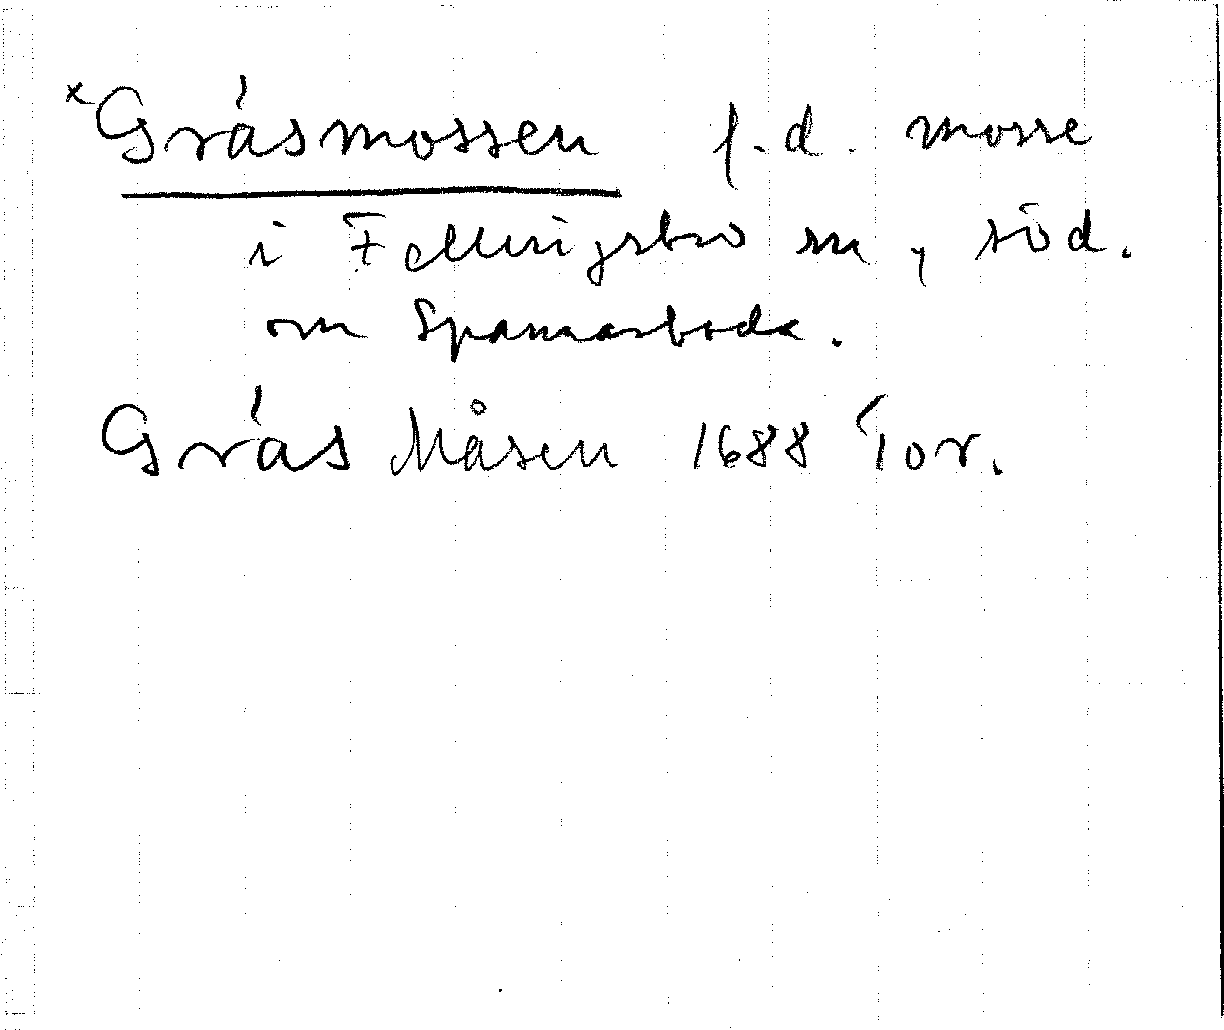 ×Gräsmossen f.d. mosse
i Fellingsbro sn, söd.
om Spannarboda.
Gräs Måsen 1688 Tor.